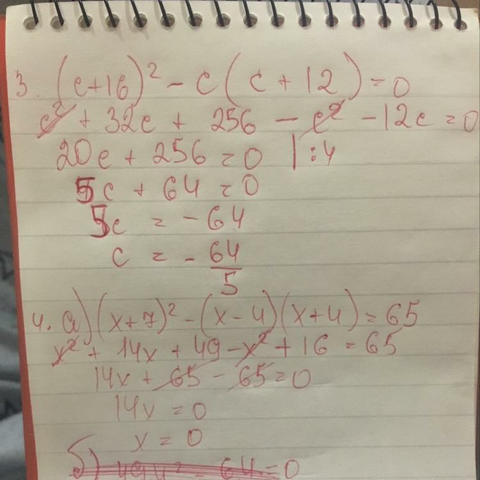 3. (c+16)² - c(c+12)=0
c² + 32c + 256 - c² - 12c = 0
20c + 256 = 0 | :4
5c + 64 = 0
5c = -64
c = - 64/5
4. а) (x+7)² - (x-4)(x+4) = 65
x² + 14x + 49 - x² + 16 = 65
14x + 65 - 65 = 0
14x = 0
x = 0
б) 49 - 64 = 0